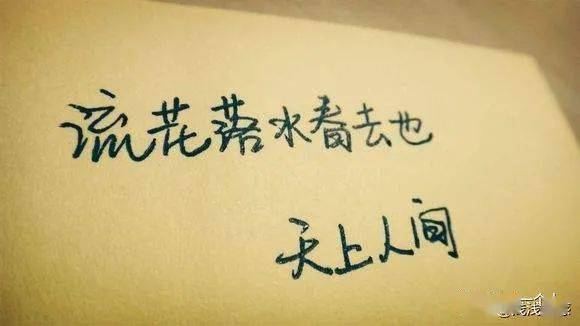 流花落水春去也
天上人间